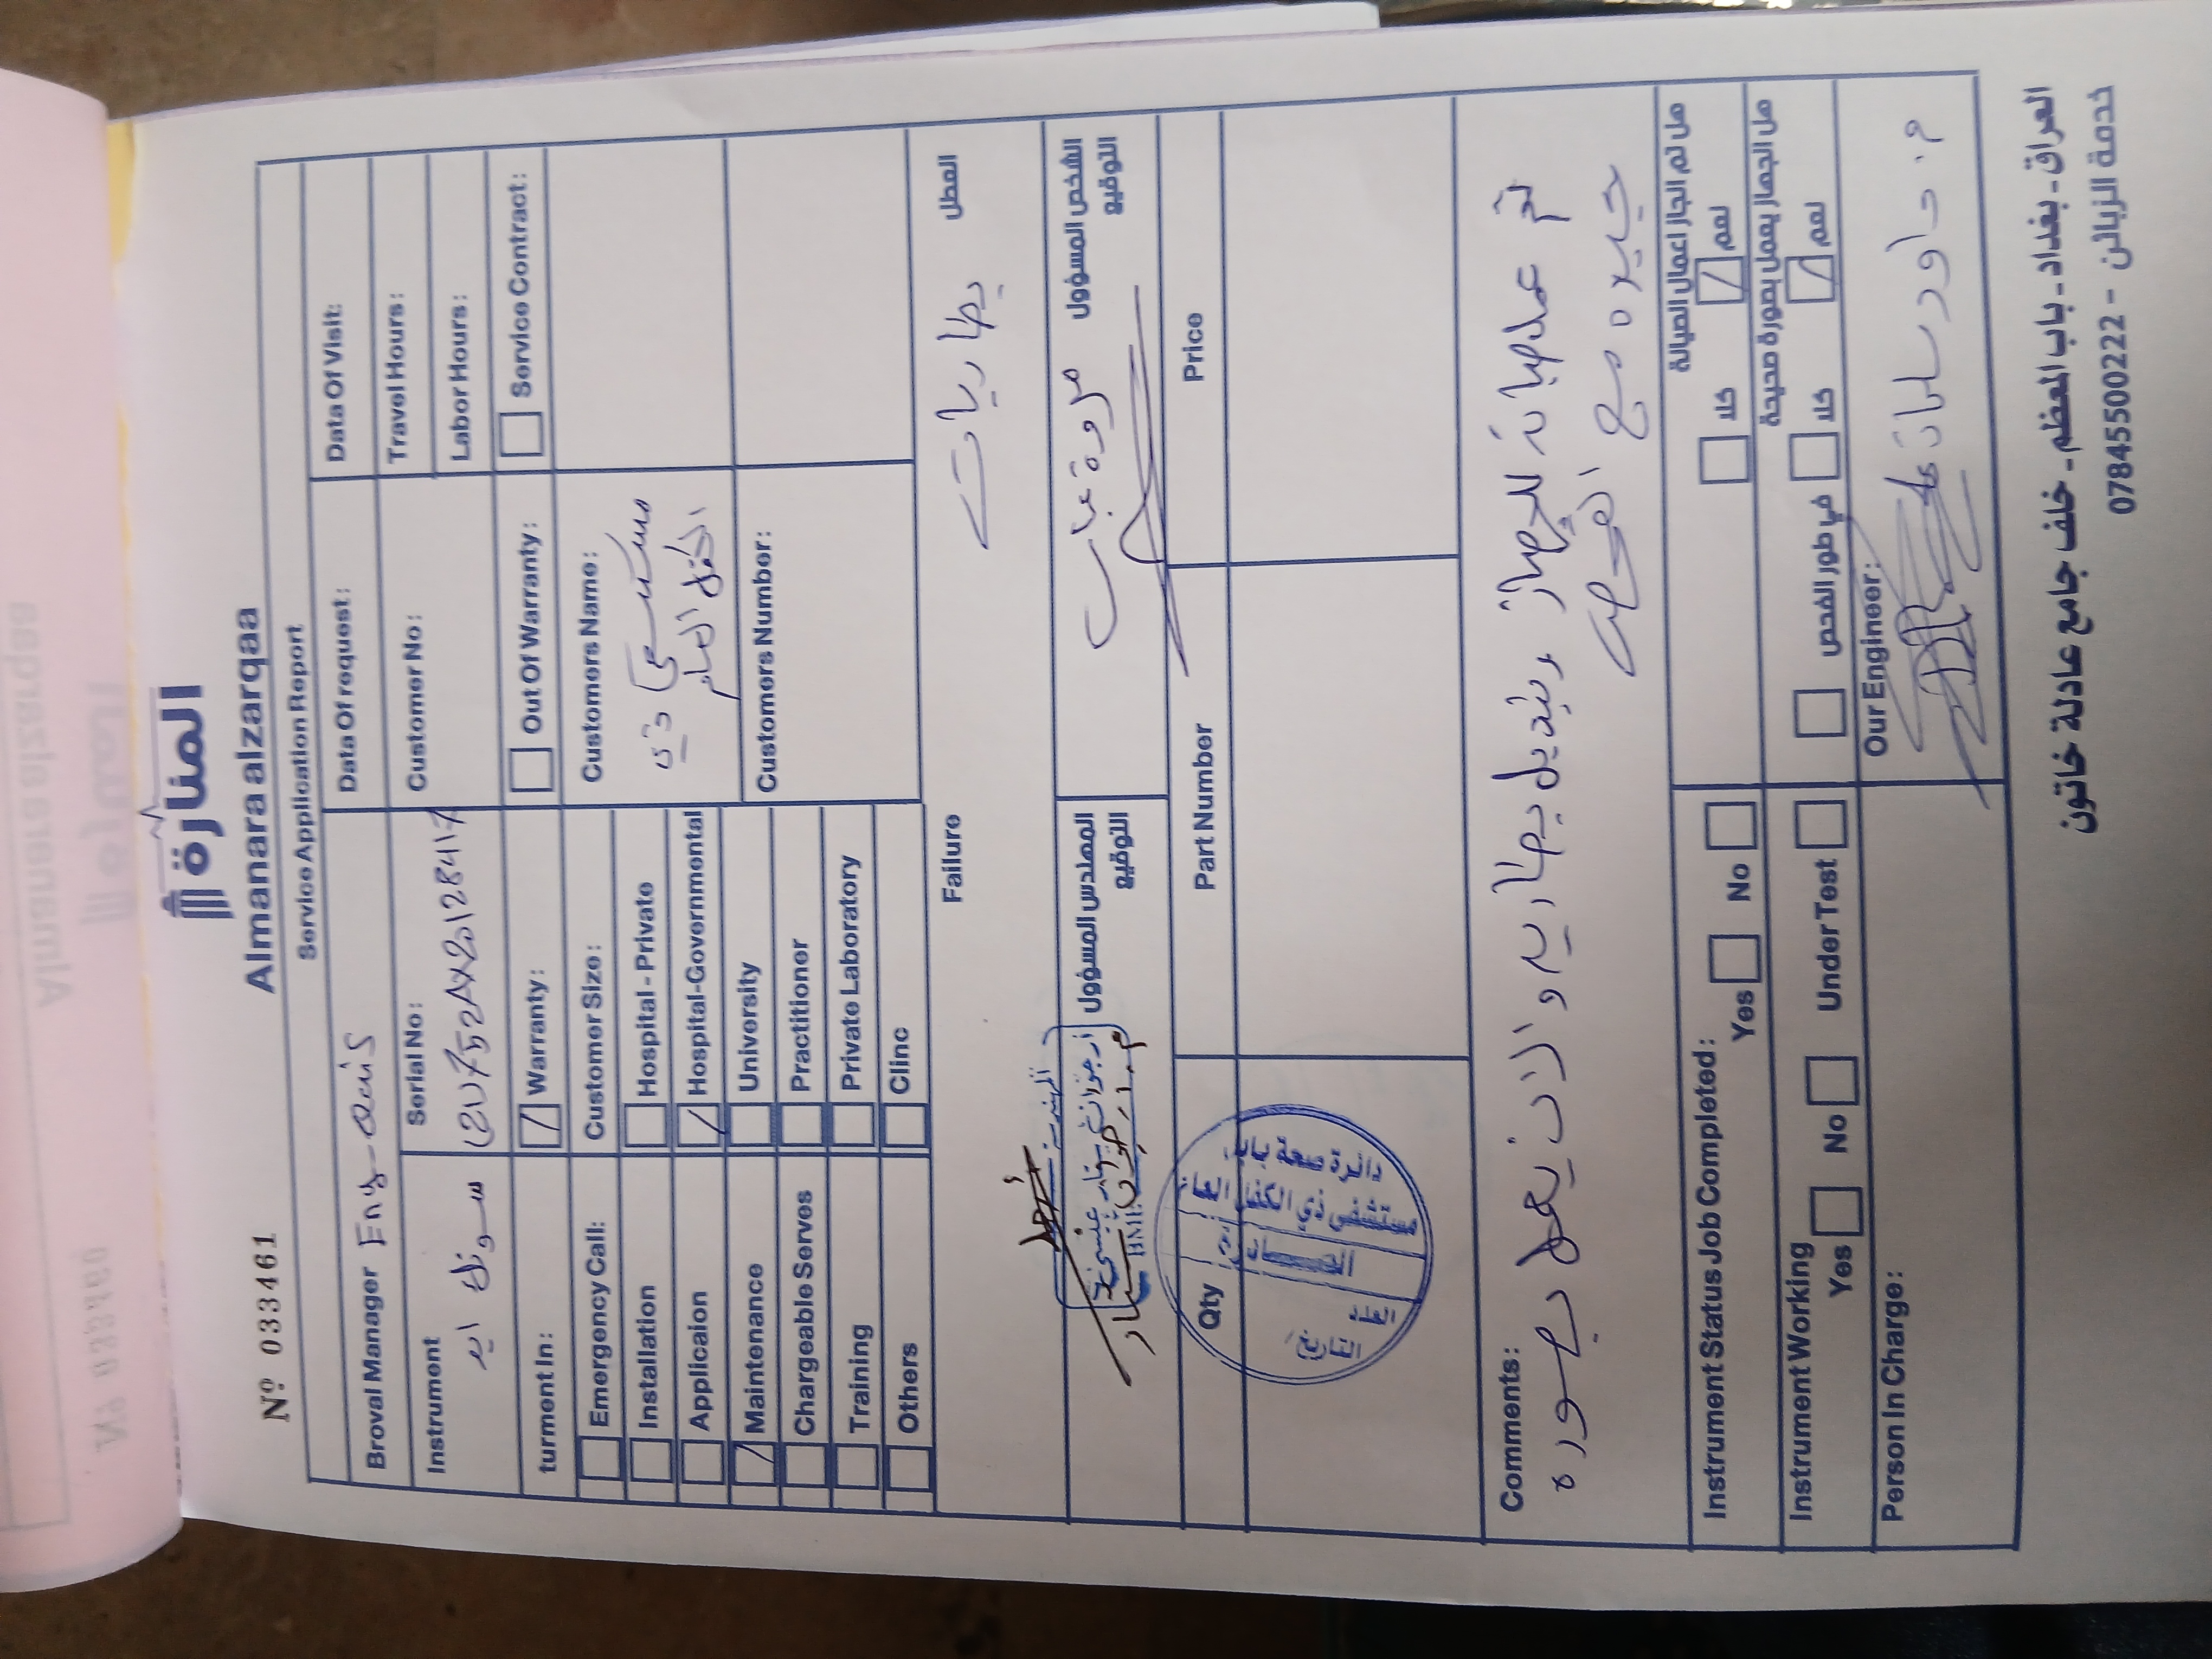 Nº 033461
المنارة
Almanara alzarqaa
Service Application Report
Broval Manager Eng-
Data Of request:
Data Of Visit:
Instrument
سونار
Serial No:
Customer No:
Travel Hours:
Labor Hours:
turment In:
Warranty:
Out Of Warranty:
Service Contract:
Emergency Call:
Customer Size:
Customers Name:
مستشفى ذي
الكفل العام
Installation
Hospital - Private
Applicaion
Hospital-Governmental
Maintenance
University
Customors Number:
Chargeable Serves
Practitioner
Training
Private Laboratory
Others
Clinc
Failure
العطل
بطاريات
المهندس المسؤول
التوقيع
الشخص المسؤول
التوقيع
مروة عباس
المهندسة
Qty
Part Number
Price
دائرة صحة بابل
مستشفى ذي الكفل العام
العدد
التاريخ
Comments:
تم عمل صيانة للجهاز وتبديل بطاريه والان يعمل بصوره
جيده مع الفحص
Instrument Status Job Completed:
Yes
No
هل تم انجاز اعمال الصيانة
كلا
نعم
Instrument Working
Yes
No
Under Test
هل الجهاز يعمل بصورة صحيحة
في طور الفحص
كلا
نعم
Person In Charge:
Our Engineer:
م. داود سلمان
العراق - بغداد - باب المعظم - خلف جامع عادلة خاتون
خدمة الزبائن - 07845500222